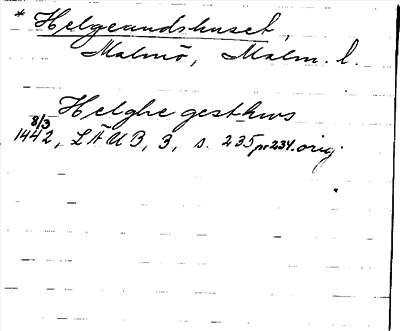 * Helgeandshuset,
Malmö, Malm. l.
Helghe gesthws
8/3
1442, LÄUB, 3, s. 235 nr 234. orig.